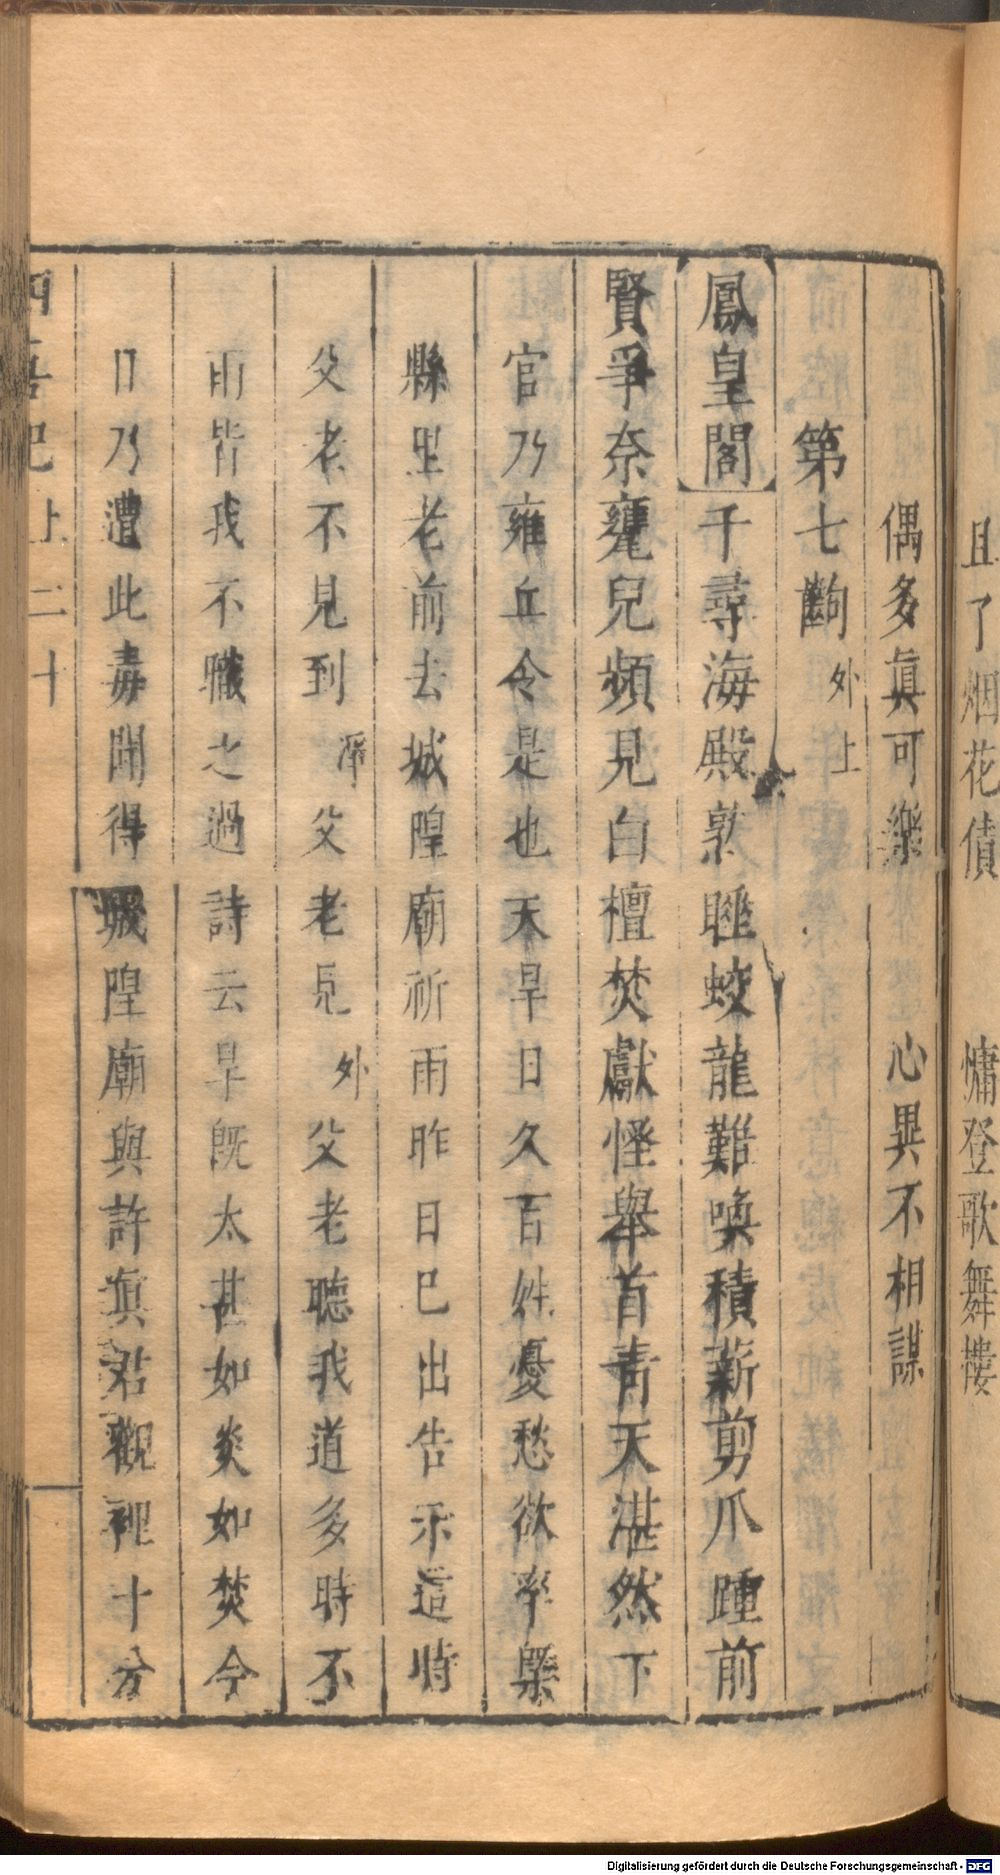 且了烟花債　慵登歌舞樓
偶多眞可樂　心異不相謀
第七齣 外上
鳳皇閣 千尋海殿熟睡蛟龍難喚積薪剪爪踵前
賢爭奈鼉兒頻見白檀焚獻怪舉首青天湛然下
官乃雍丘令是也天旱日久百姓憂愁欲率槩
縣里老前去城隍廟祈雨昨日已出告示這時
父老不見到 淨 父老見 外 父老聽我道多時不
雨皆我不職之過詩云旱既太甚如炎如焚今
日乃遭此毒聞得城隍廟與許眞君觀裡十分
四喜記上 二十
Digitalisierung gefördert durch die Deutsche Forschungsgemeinschaft - DFG